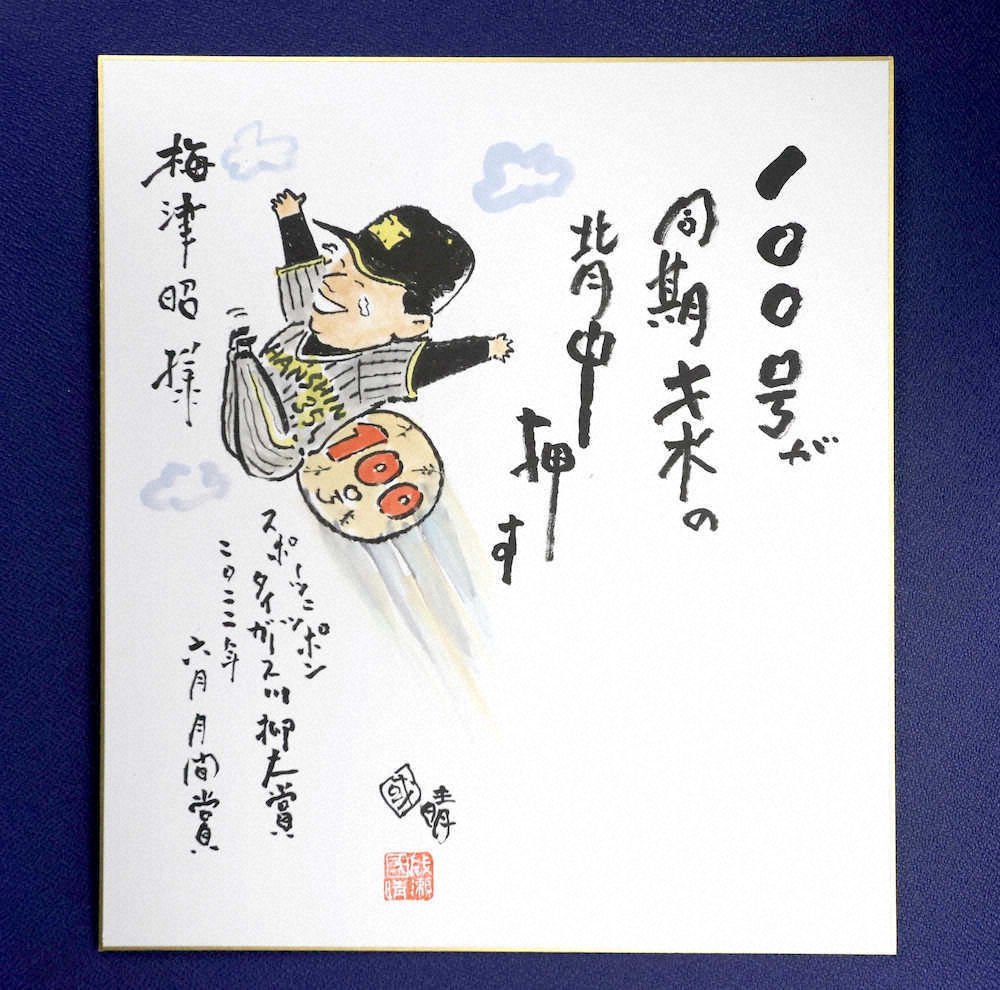 100号が
同期才木の
背中
押す
HANSHIN
35
100
号
スポーツニッポン
タイガース川柳大賞
二〇二二年
六月月間賞
梅津昭様
國晴
成瀬
國晴